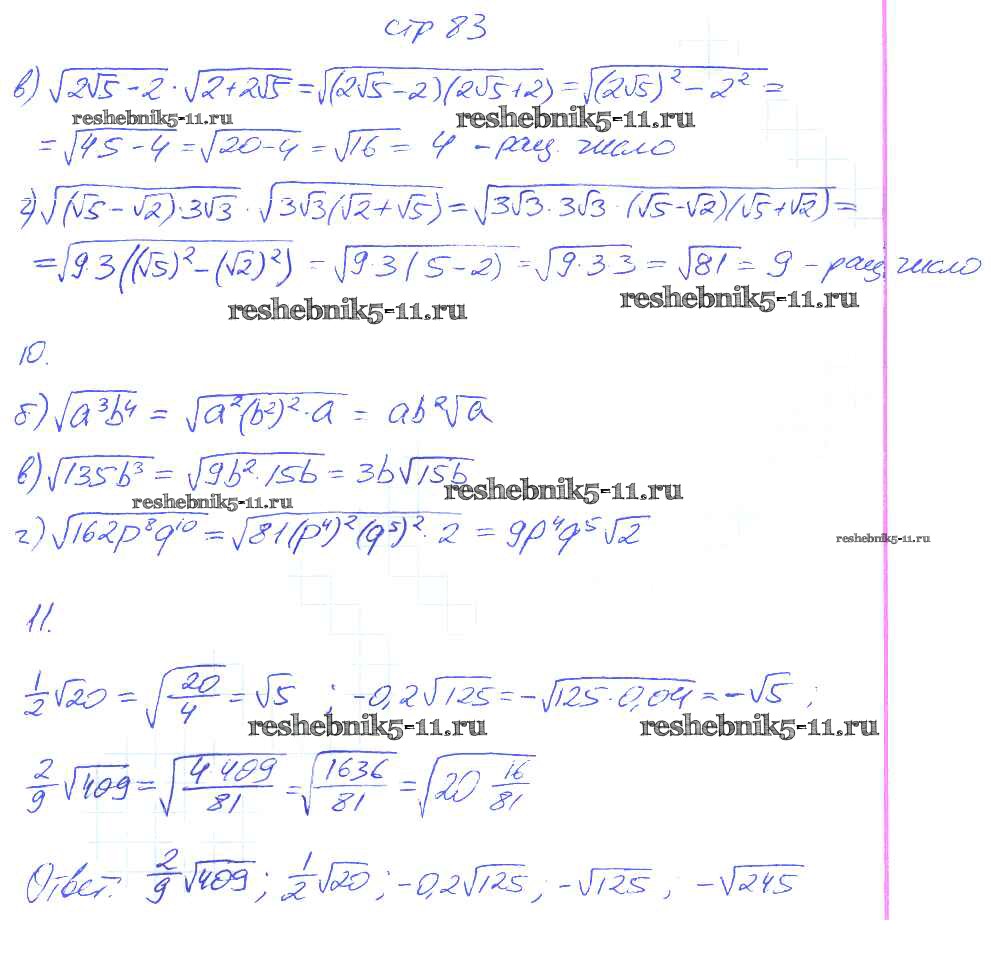 стр 83
в) √(2√5 − 2) · √(2 + 2√5) = √((2√5 − 2)(2√5 + 2)) = √((2√5)² − 2²) =
reshebnik5-11.ru reshebnik5-11.ru
= √(45 − 4) = √(20 − 4) = √16 = 4 − рац. число
г) √((√5 − √2) · 3√3) · √(3√3(√2 + √5)) = √(3√3 · 3√3 · (√5 − √2)(√5 + √2)) =
= √(9·3((√5)² − (√2)²)) = √(9·3(5 − 2)) = √(9·3·3) = √81 = 9 − рац. число
reshebnik5-11.ru reshebnik5-11.ru
10.
б) √(a³b⁴) = √(a²(b²)² · a) = ab²√a
в) √(135b³) = √(9b² · 15b) = 3b√(15b)
reshebnik5-11.ru reshebnik5-11.ru
г) √(162p⁸q¹⁰) = √(81(p⁴)²(q⁵)² · 2) = 9p⁴q⁵√2
reshebnik5-11.ru
11.
1/2 √20 = √(20/4) = √5 ; −0,2√125 = −√(125 · 0,04) = −√5 ;
reshebnik5-11.ru reshebnik5-11.ru
2/9 √409 = √(4·409/81) = √(1636/81) = √(20 16/81)
Ответ: 2/9 √409 ; 1/2 √20 ; −0,2√125 ; −√125 ; −√245